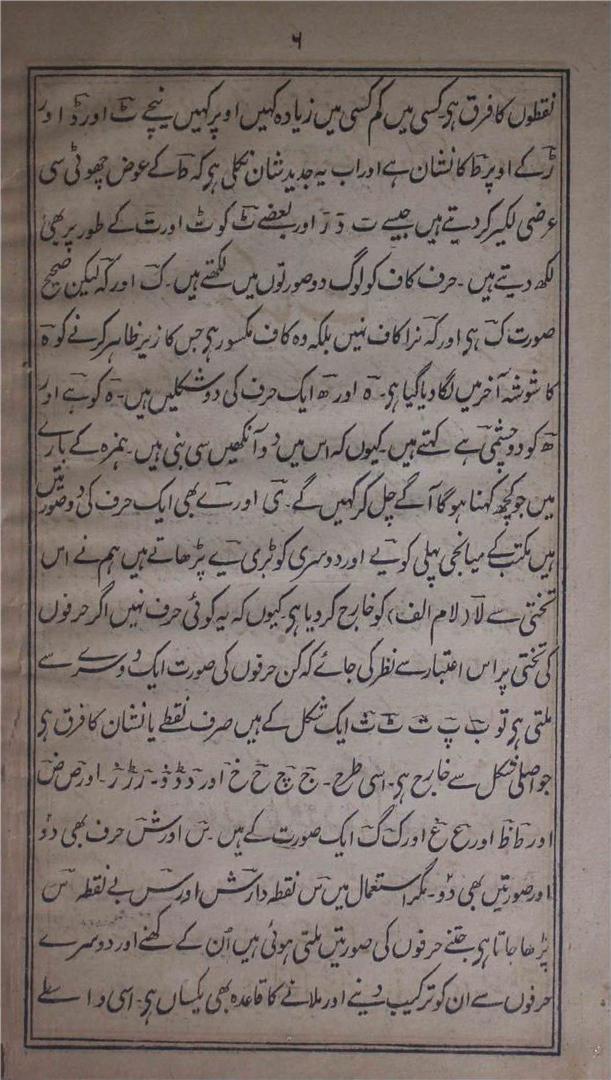 ۶
نقطوں کا فرق ہی۔ کسی میں کم کسی میں زیادہ کہیں اوپر کہیں نیچے ٹ اور ڈ اور
ڑ کے اوپر ط کا نشان ہے اور اب یہ جدید شان نکلی ہی کہ ط کے عوض چھوٹی سی
عرضی لکیر کر دیتے ہیں جیسے اور بعضے کو ٹ اور ت کے طور پر بھی
لکھ دیتے ہیں۔ حرف کاف کو لوگ دو صورتوں میں لکھتے ہیں۔ ک اور کہ لیکن صحیح
صورت ک ہی اور کہ نرا کاف نہیں بلکہ وہ کاف مکسور ہی جس کا زیر ظاہر کرنے کو ہ
کا شوشہ آخر میں لگا دیا گیا ہی۔ ہ اور ھ ایک حرف کی دو شکلیں ہیں۔ ہ کو ہے اور
ھ کو دوچشمی ہے کہتے ہیں۔ کیوں کہ اس میں دو آنکھیں سی بنی ہیں۔ ہمزہ کے بارے
میں جو کچھ کہنا ہو گا آگے چل کر کہیں گے۔ ی اور ے بھی ایک حرف کی دو صورتیں
ہیں مکتب کے میانجی پہلی کو یے اور دوسری کو بڑی یے پڑھاتے ہیں ہم نے اس
تختی سے لا (لام الف) کو خارج کر دیا ہی۔ کیوں کہ یہ کوئی حرف نہیں اگر حرفوں
کی تختی پر اس اعتبار سے نظر کی جائے کہ کن حرفوں کی صورت ایک دوسرے سے
ملتی ہی تو ب پ ت ٹ ث ایک شکل کے ہیں صرف نقطے یا نشان کا فرق ہی
جو اصلی شکل سے خارج ہی۔ اسی طرح۔ ج چ ح خ اور د ڈ ذ۔ ر ڑ ز ژ۔ اور ص ض
اور ط ظ اور ع غ اور ک گ ایک صورت کے ہیں۔ س اور ش حرف بھی دو
اور صورتیں بھی دو۔ مگر استعمال میں س نقطہ دار ش اور س بے نقطہ س
پڑھا جاتا ہی جتنے حرفوں کی صورتیں ملتی ہوئی ہیں اُن کے لکھنے اور دوسرے
حرفوں سے ان کو ترکیب دینے اور ملانے کا قاعدہ بھی یکساں ہی۔ اسی واسطے